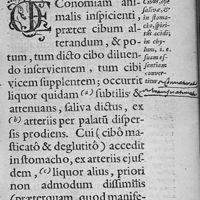 Economiam ani-
malis inspicienti,
præter cibum al-
terandum, & po-
tum, tum dicto cibo diluen-
do inservientem, tum cibi
vicem supplentem; occurrit
liquor quidam (a) subtilis &
attenuans, saliva dictus, ex
(b) arteriis per palatũ disper-
sis prodiens. Cui (cibõ ma-
sticatõ & deglutitõ) accedit
in stomacho, ex arteriis ejus-
dem, (c) liquor alius, priori
non admodum dissimilis
(præterquam quod manife-
salivæ, &
in stoma-
cho, spiri-
tus acidi;
in chy-
lum, i. e.
suam es-
sentiam
conver-
titur